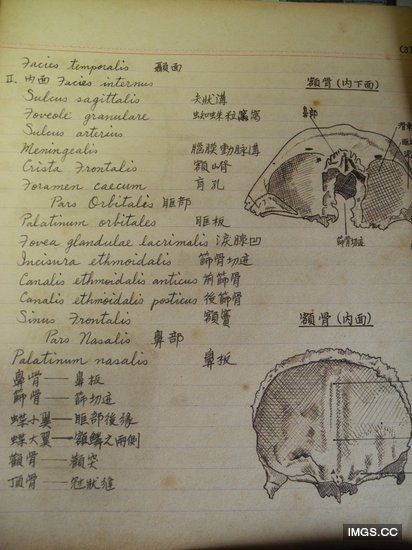 Facies temporalis 顳面
II. 内面 Facies internus
Sulcus sagittalis 矢狀溝
Foveole granulare 蜘蛛粒窩
Sulcus arterius
Meningealis 腦膜動脈溝
Crista Frontalis 額嵴
Foramen caecum 盲孔
Pars Orbitales 眶部
Palatinum orbitales 眶板
Fovea glandulae lacrimalis 淚腺凹
Incisura ethmoidalis 篩骨切迹
Canalis ethmoidalis anticus 前篩骨
Canalis ethmoidalis posticus 後篩骨
Sinus Frontalis 額竇
Pars Nasalis 鼻部
Palatinum nasalis 鼻板
鼻骨——鼻板
篩骨——篩切迹
蝶小翼——眶部後緣
蝶大翼——額鱗之兩側
顴骨——顴突
頂骨——冠狀縫
額骨(内下面)
鼻部
篩骨切迹
額骨(内面)
IMGS.CC